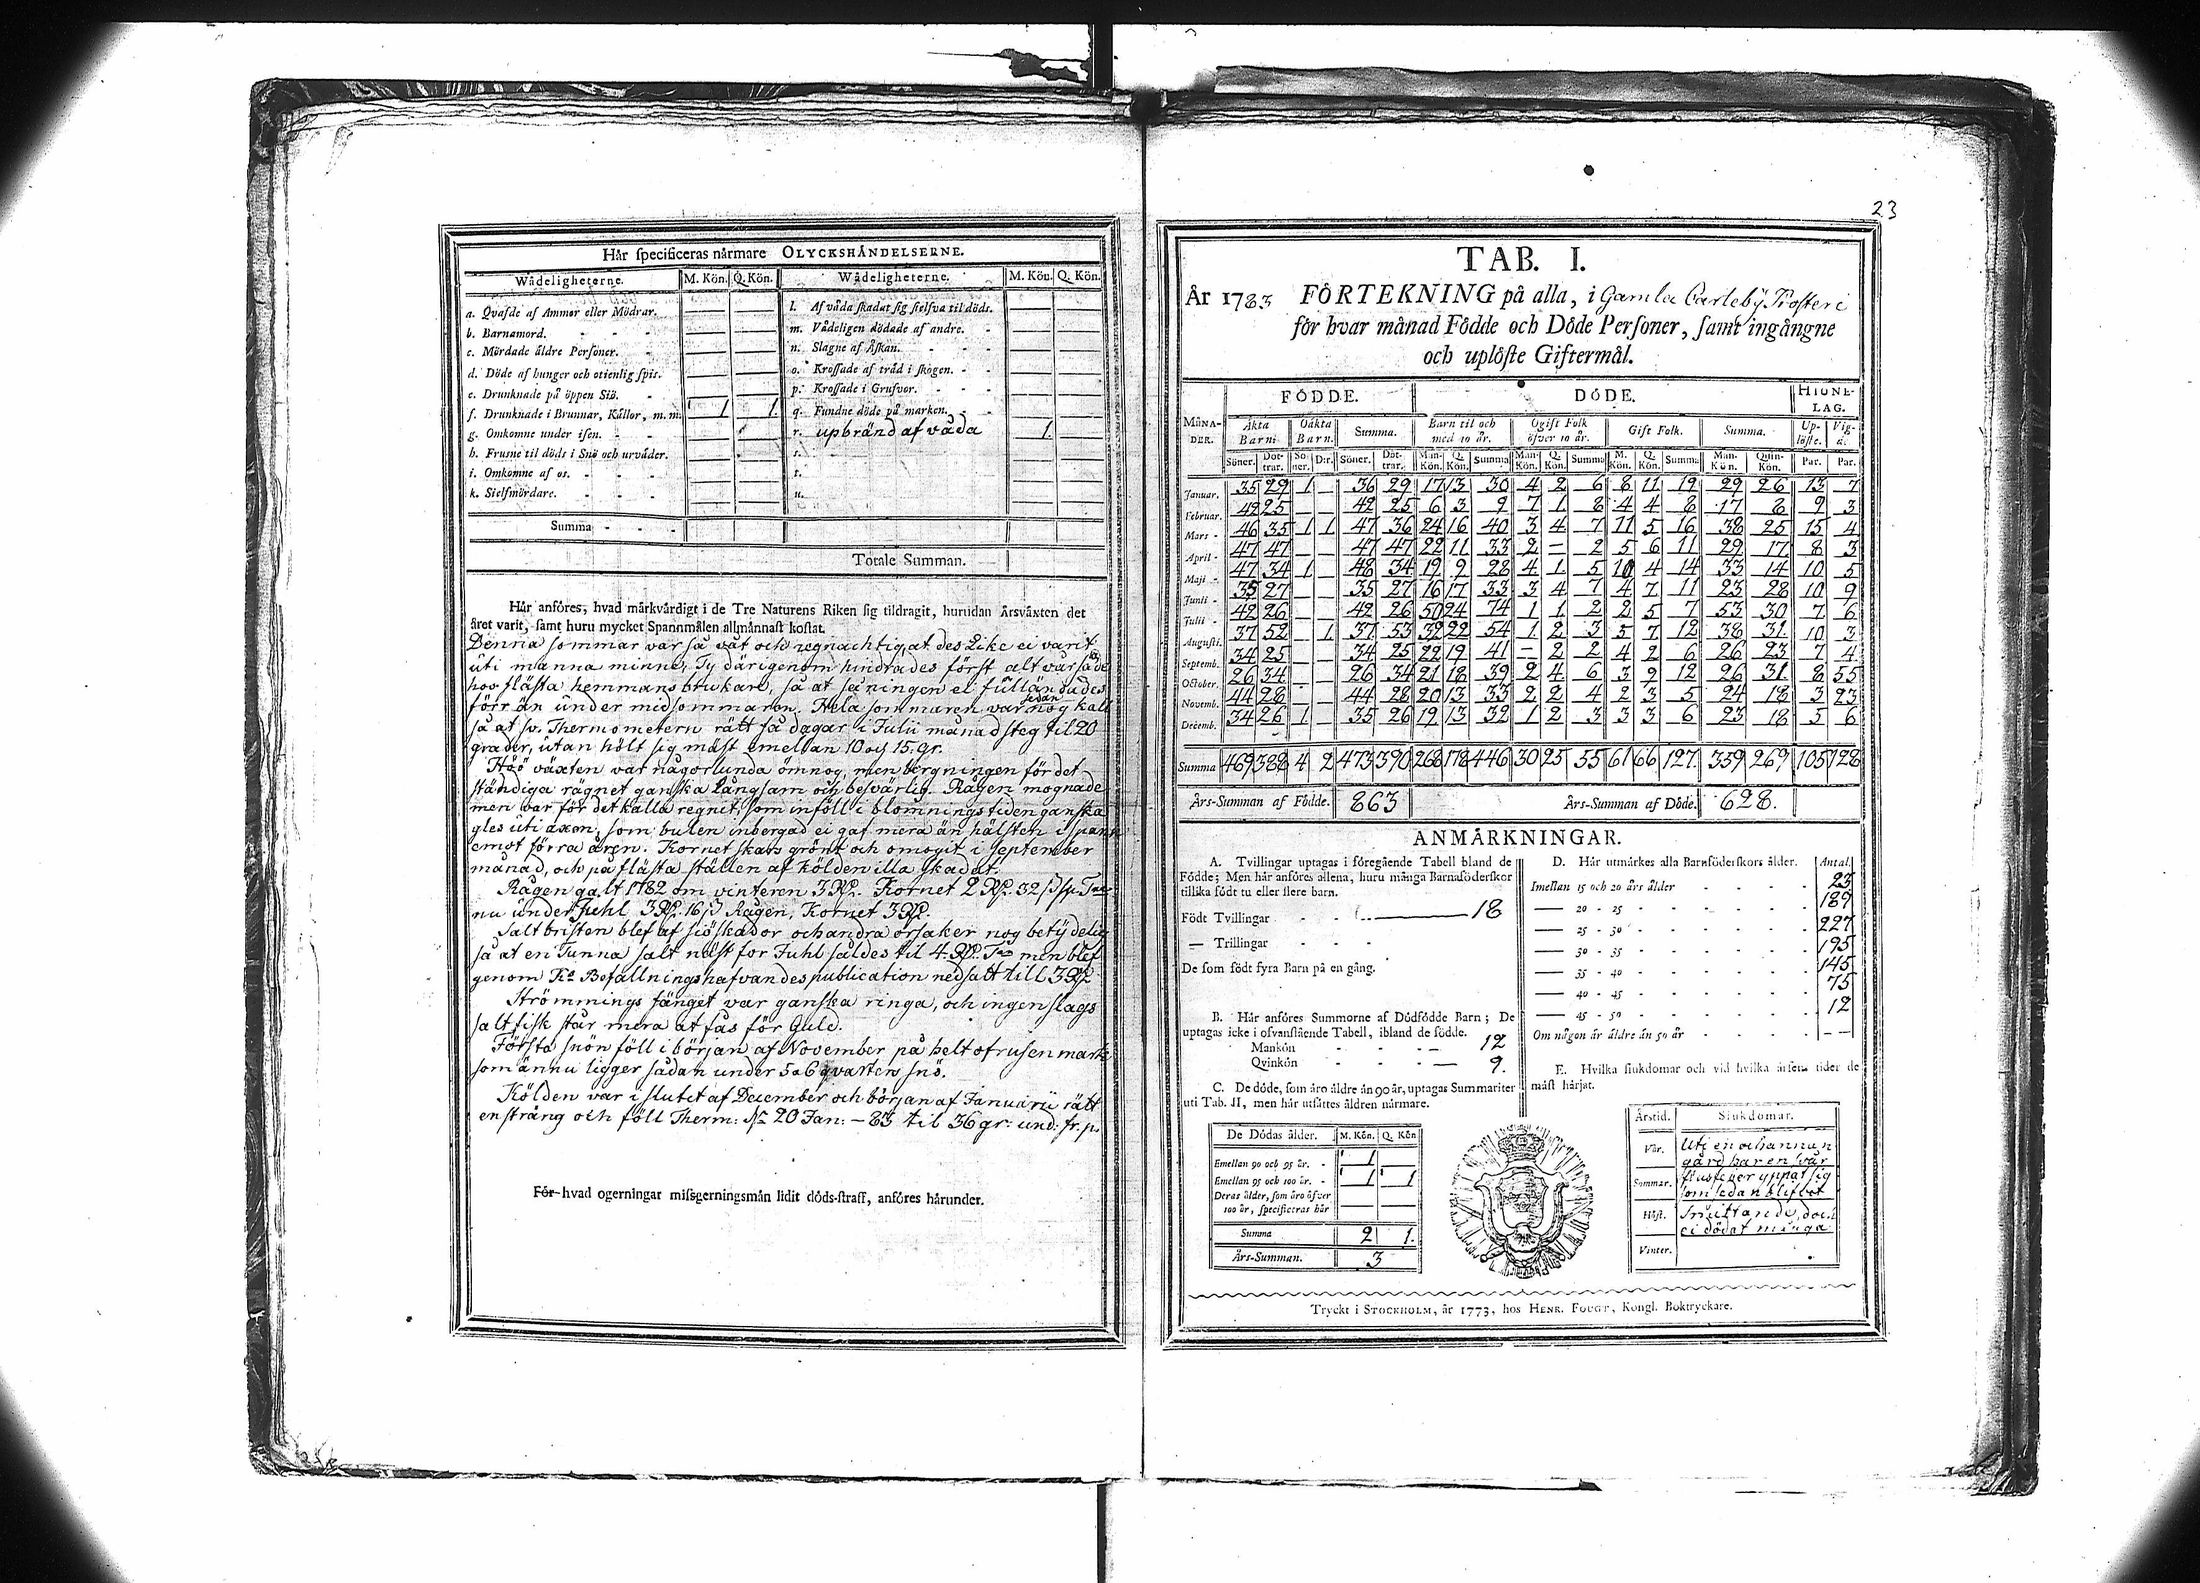 Hår specificeras nårmare OLYCKSHÅNDELSERNE.
Wådeligheterne. M. Kön. Q. Kön. Wådeligheterne. M. Kön. Q. Kön.
a. Qvafde af Ammor eller Mödrar. — — l. Af våda skadat sig sielfva til döds. — —
b. Barnamord. — — m. Vådeligen dödade af andre. — —
c. Mördade äldre Personer. — — n. Slagne af Åskan. — —
d. Döde af hunger och otienlig spis. — — o. Krossade af träd i skogen. — —
e. Drunknade på öppen Siö. — — p. Krossade i Grufvor. — —
f. Drunknade i Brunnar, Källor, m.m. 1 1. q. Fundne döde på marken. — —
g. Omkomne under isen. — — r. upbränd af våda 1. —
h. Frusne til döds i Snö och urväder. — — s. — —
i. Omkomne af os. — — t. — —
k. Sielfmördare. — — u. — —
Summa - - -
Totale Summan.
Hår anföres, hvad mårkvårdigt i de Tre Naturens Riken sig tildragit, hurudan årsvåxten det
året varit, samt huru mycket Spannmålen allmånnast kostat.
Denna sommar var så våt och regnachtig, at des Like ei varit
uti manna minne, Ty därigenom hindrades först alt vårsäde
hos flästa hemmans brukare, så at såningen ei fülländades
förr än under midsommaren. Hela sommaren var sedan nog kall
så at sv. Thermometern rätt få dagar i Julii månad steg til 20
grader, utan hölt sig mäst emellan 10 och 15. gr.
Höö växten var någorlunda ömnog, men bergningen för det
ständiga rägnet ganska långsam och besvärlig. Rågen mognade
men var för det kalla regnet, som inföll i blomningstiden ganska
gles uti axen, som bulen inbergad ei gaf mera än hälften i spann
emot förra åren. Kornet skars grönt och omogit i September
månad, och på flästa ställen af kölden illa skadat.
Rågen galt 1782 om vinteren 3 Rd. Kornet 2 Rd. 32 s
nu under Juhl 3 Rd. 16 s Rågen, Kornet 3 Rd.
Saltbristen blef af siöskador och andra orsaker nog betydelig
så at en Tunna salt näst for Juhl såldes til 4 Rd. men blef
genom Befallningshafvandes publication nedsatt till 3 Rd
Strömmings fänget var ganska ringa, och ingen slags
salt fisk står mera at fås för Guld.
Första snön föll i början af November på helt ofrusen mark
som ännu ligger sådan under 5 a 6 qvarters snö.
Kölden var i slutet af December och början af Januarii rätt
en sträng och föll Therm: 20 Jan: — 83 til 36 gr: und: fr. p.
För hvad ogerningar missgerningsmån lidit döds-straff, anföres hårunder.
23
TAB. I.
År 1783 FÖRTEKNING på alla, i Gamla Carleby Prosteri
för hvar månad Födde och Döde Personer, samt ingångne
och uplöste Giftermål.
FÖDDE. DÖDE. HIONELAG.
MÅNADER. Äkta Barn. Oäkta Barn. Summa. Barn til och med 10 år. Ogift Folk öfver 10 år. Gift Folk. Summa. Uplöste. Vigde.
Söner. Döttrar. Söner. D:r. Söner. Döttrar. Man-Kön. Q. Kön. Summa Man-Kön. Q. Kön. Summa M. Kön. Q. Kön. Summa Man-Kön. Quin-Kön. Par. Par.
Januar. 35 29 1 — 36 29 17 13 30 4 2 6 8 11 19 29 26 13 7
Februar. 42 25 — — 42 25 6 3 9 7 1 8 4 4 8 17 8 9 3
Mars - 46 35 1 1 47 36 24 16 40 3 4 7 11 5 16 38 25 15 4
April - 47 47 — — 47 47 22 11 33 2 — 2 5 6 11 29 17 8 3
Maji - 47 34 1 — 48 34 19 9 28 4 1 5 10 4 14 33 14 10 5
Junii - 35 27 — — 35 27 16 17 33 3 4 7 4 7 11 23 28 10 9
Julii - 42 26 — — 42 26 50 24 74 1 1 2 2 5 7 53 30 7 6
Augusti. 37 52 — 1 37 53 32 22 54 1 2 3 5 7 12 38 31 10 3
Septemb. 34 25 — — 34 25 22 19 41 — 2 2 4 2 6 26 23 7 4
October. 26 34 — — 26 34 21 18 39 2 4 6 3 9 12 26 31 8 55
Novemb. 44 28 — — 44 28 20 13 33 2 2 4 2 3 5 24 18 3 23
Decemb. 34 26 1 — 35 26 19 13 32 1 2 3 3 3 6 23 18 5 6
Summa 469 388 4 2 473 390 268 178 446 30 25 55 61 66 127. 359 269 105 128
Års-Summan af Födde. 863 Års-Summan af Döde. 628.
ANMÅRKNINGAR.
A. Tvillingar uptagas i föregående Tabell bland de
Födde; Men hår anföres allena, huru många Barnaföderskor
tillika födt tu eller flere barn.
Födt Tvillingar - - — 18
— Trillingar - - -
De som födt fyra Barn på en gång.
B. Hår anföres Summorne af Dödfödde Barn; De
uptagas icke i ofvanstående Tabell, ibland de födde.
Mankön - - - 12
Qvinkön - - - 9.
C. De döde, som åro åldre ån 90 år, uptagas Summariter
uti Tab. II, men hår utsåttes åldren nårmare.
De Dödas ålder. M. Kön. Q. Kön
Emellan 90 och 95 år. - 1 —
Emellan 95 och 100 år. - 1 1
Deras ålder, som åro öfver
100 år, specificeras hår — —
Summa 2 1.
Års-Summan. 3
D. Hår utmårkes alla Barnföderskors ålder. Antal.
Imellan 15 och 20 års ålder - - - 23
— 20 - 25 - - - 189
— 25 - 30 - - - 227
— 30 - 35 - - - 195
— 35 - 40 - - - 145
— 40 - 45 - - - 75
— 45 - 50 - - - 12
Om någon är äldre än 50 år - - - — —
E. Hvilka siukdomar och vid hvilka årsens tider de
måst hårjat.
Årstid. Siukdomar.
Vår. Uti en och annan
gård har en svår
Sommar. fluss feber yppat sig
som sedan blifvet
Höst. Smittande, doch
ei dödat många.
Vinter.
Tryckt i STOCKHOLM, år 1773, hos HENR. FOUGT, Kongl. Boktryckare.